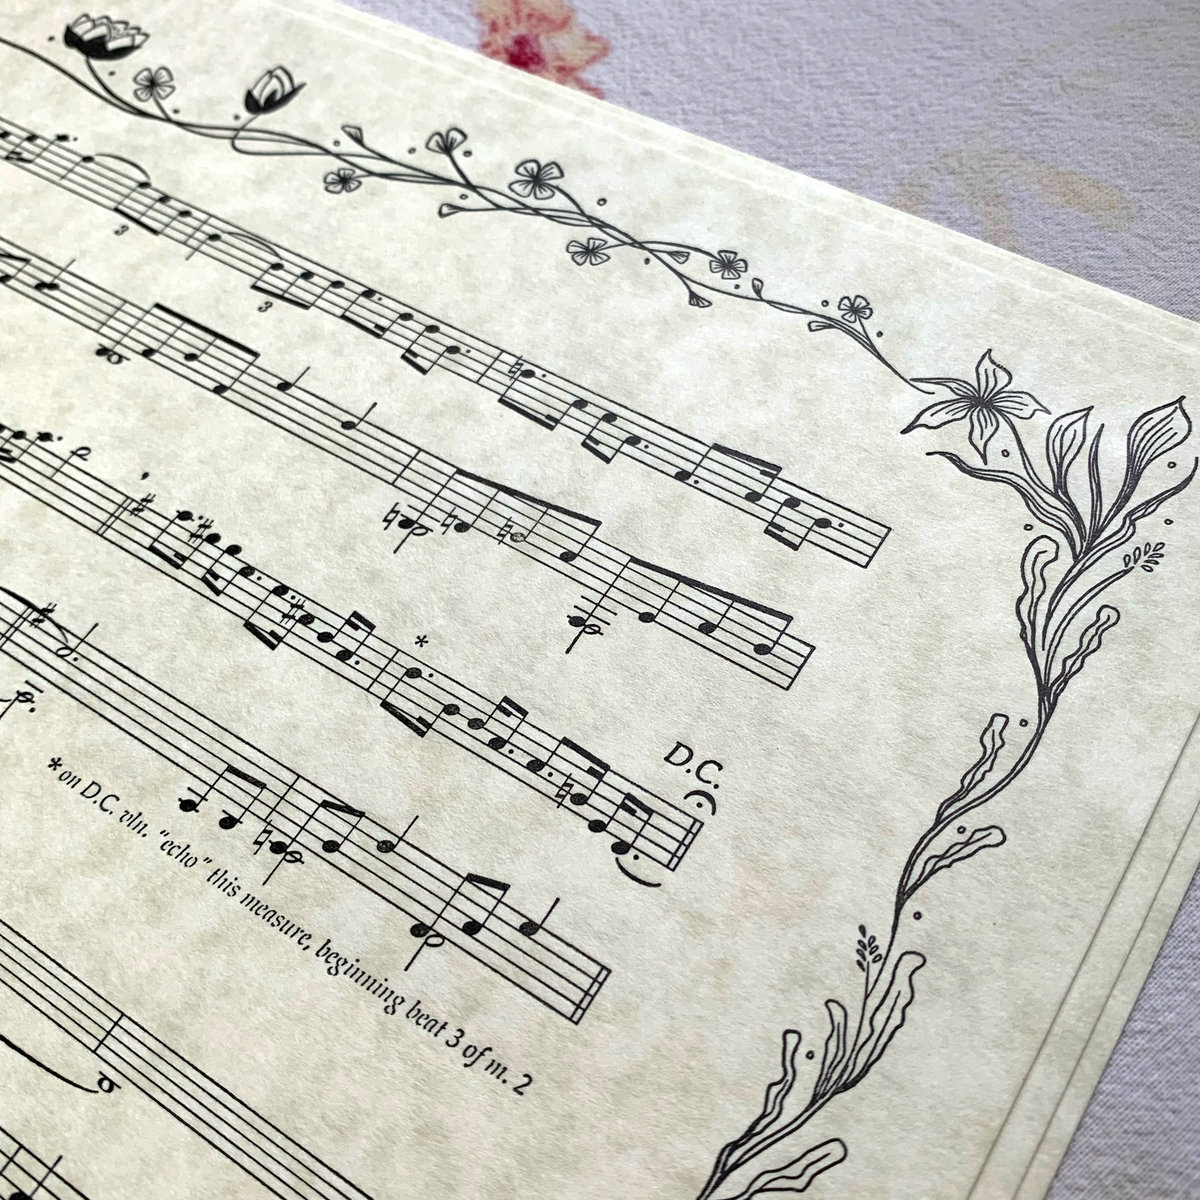 3
3
*
D.C.
*on D.C. vln. "echo" this measure, beginning beat 3 of m. 2